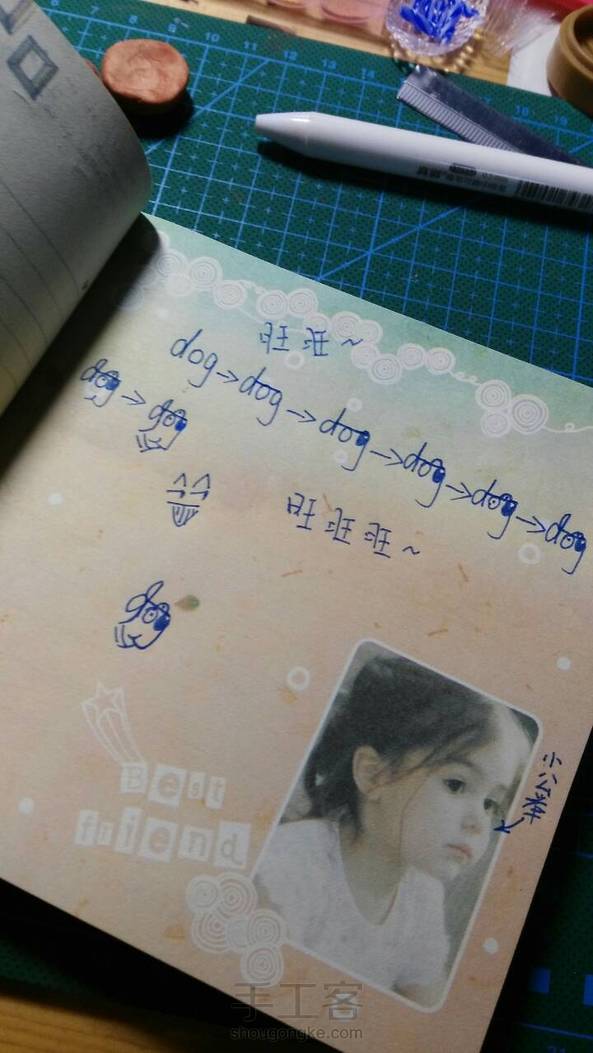 旺旺~
dog→dog→dog→dog→dog→dog
dog→dog
旺旺旺~
dog
小公举
Best
friend
手工客
shougongke.com